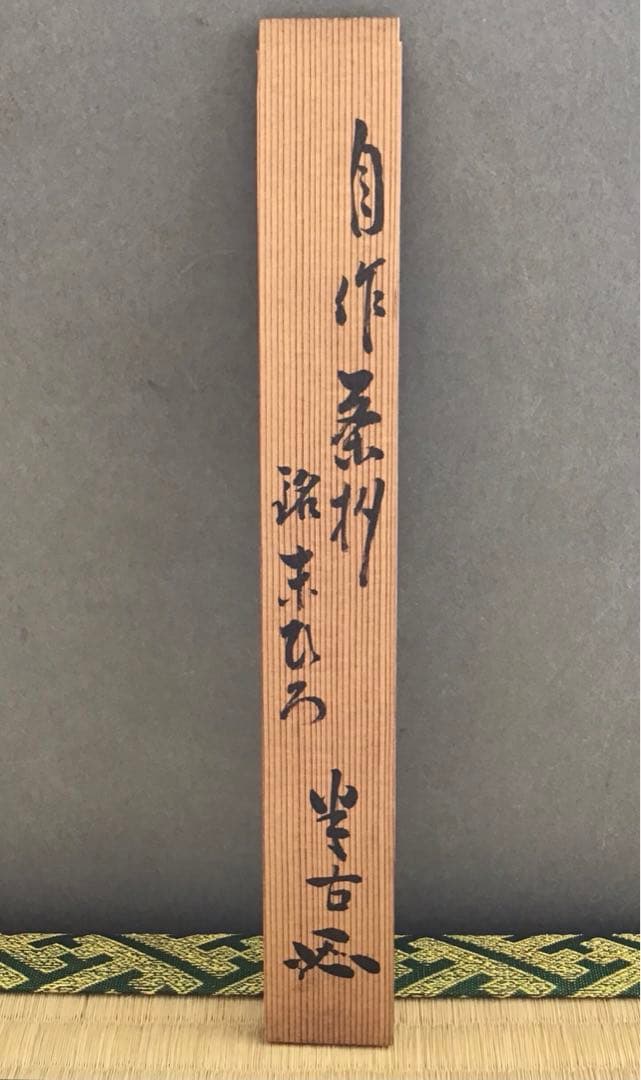 自作茶杓
銘末ひろ
半古